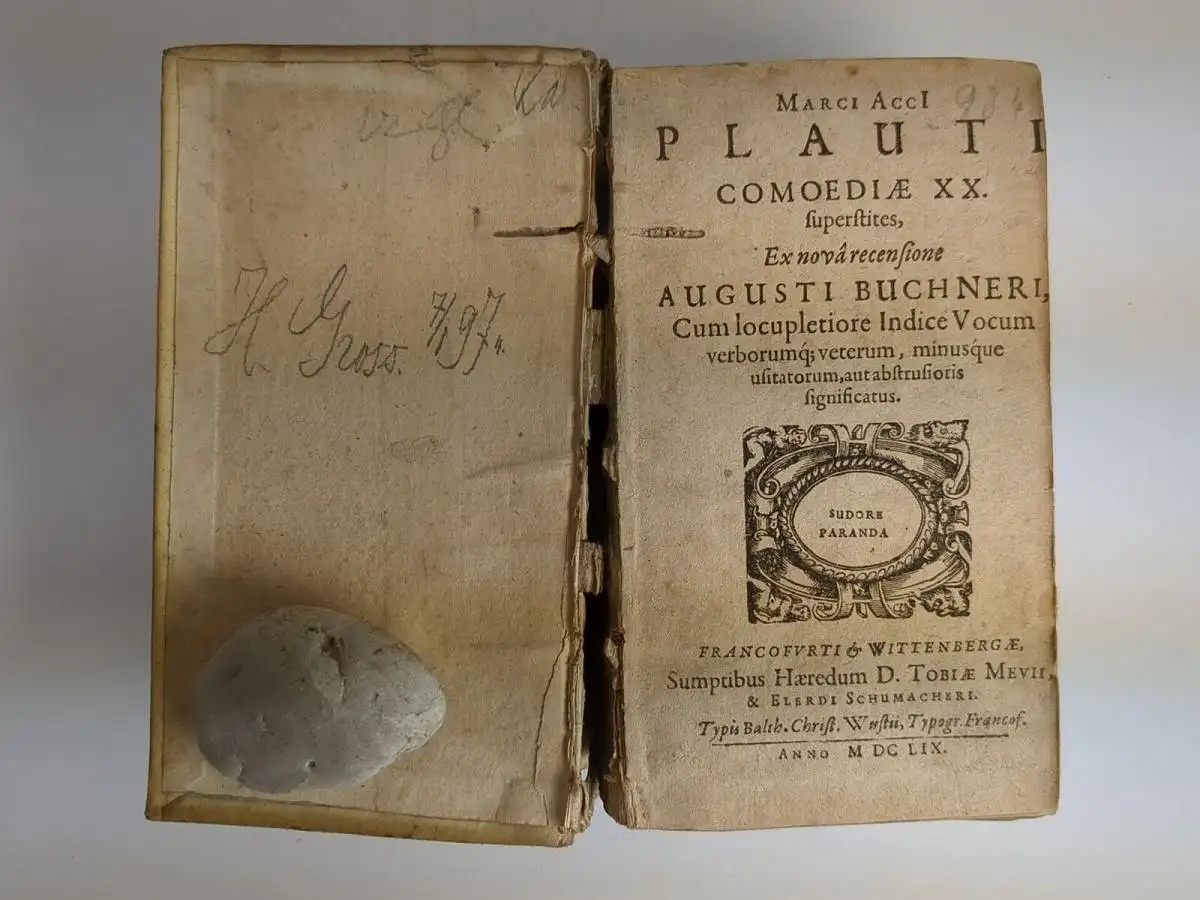 H. Gross. 7/4 97.
984
MARCI ACCI
PLAUTI
COMOEDIÆ XX.
ſuperſtites,
Ex novâ recenſione
AUGUSTI BUCHNERI,
Cum locupletiore Indice Vocum
verborumq́; veterum, minusq́ue
uſitatorum, aut abſtruſioris
ſignificatus.
SUDORE
PARANDA
FRANCOFVRTI & WITTENBERGÆ,
Sumptibus Hæredum D. TOBIÆ MEVII,
& ELERDI SCHUMACHERI.
Typis Balth. Chriſt. Wuſtii, Typogr. Francof.
ANNO M DC LIX.